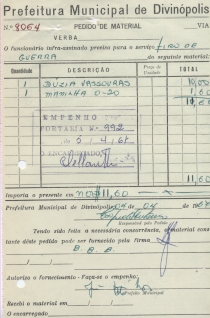 Prefeitura Municipal de Divinópolis
N.º 8064 PEDIDO DE MATERIAL VIA
VERBA
O funcionário infra-assinado precisa para o serviço TIRO DE
GUERRA do seguinte material:
Quantidade DESCRIÇÃO Preço da Unidade TOTAL
1 DUZIA VASSOURAS 10,00
1 MANILHA 0-20 1,60
11,60
EMPENHO
PORTARIA N.º 992
de 5/4/67
O ENCARREGADO
Importa o presente em 11,60
Prefeitura Municipal de Divinópolis, 04 de 04 de 1967
Responsável pelo Pedido
Tendo sido feita a necessária concorrência, o material cons-
tante dêste pedido pode ser fornecido pela firma
Autorizo o fornecimento - Faça-se o empenho:
Prefeito Municipal
Recebi o material em / /
O encarregado